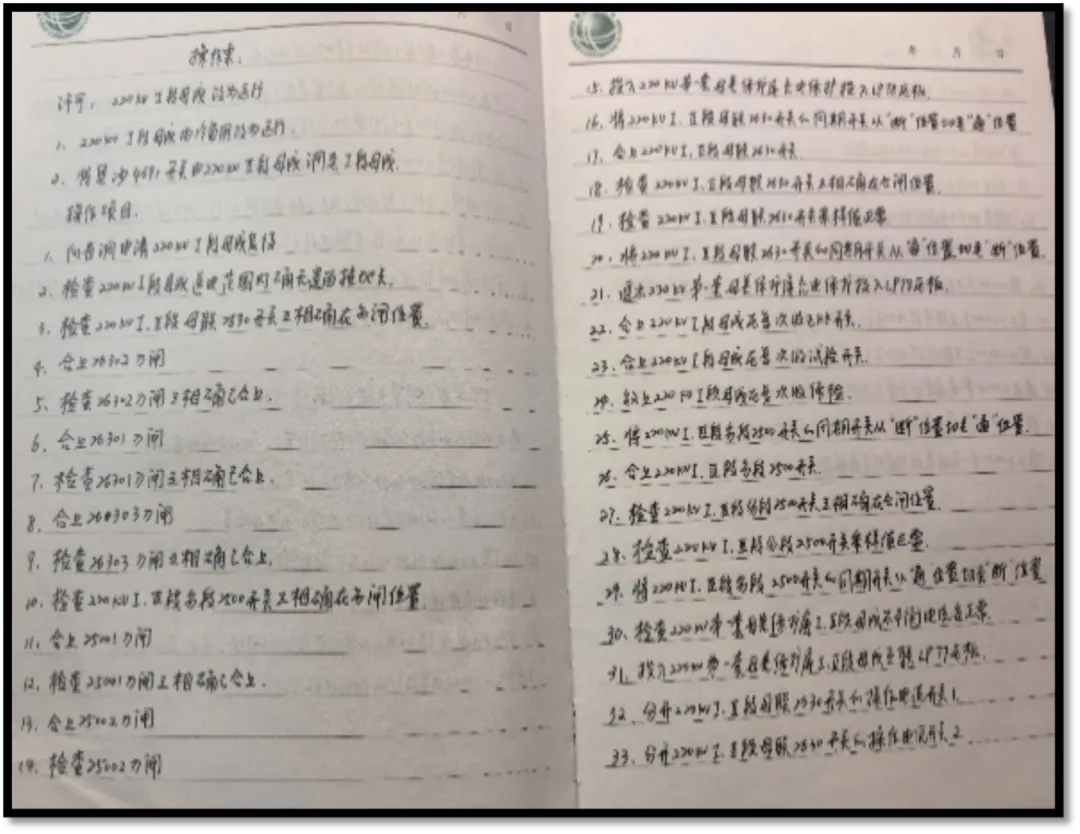 月 日
操作票:
许可: 220kV I段母线改为运行
1. 220kV I段母线由冷备用改为运行.
2. 将 4691开关由220kV II段母线调至I段母线.
操作项目.
1. 向省调申请220kV I段母线复役
2. 检查220kV I段母线送电范围内确无遗留接地
3. 检查220kV I. II段母联2630开关三相确在分闸位置.
4. 合上26302刀闸
5. 检查26302刀闸三相确已合上.
6. 合上26301刀闸
7. 检查26301刀闸三相确已合上.
8. 合上260303刀闸
9. 检查26303刀闸三相确已合上.
10. 检查220kV I. 段分段2500开关三相确在分闸位置.
11. 合上25001刀闸
12. 检查25001刀闸三相确已合上.
13. 合上25002刀闸
14. 检查25002刀闸
年 月 日
15. 投入220kV第一套母差保护 充电保护投入LP77压板.
16. 将220kV I. II段母联2630开关的同期开关从"断"位置切至"通"位置
17. 合上220kV I. II段母联2630开关.
18. 检查220kV I. II段母联2630开关三相确在合闸位置.
19. 检查220kV I. II段母联2610开关采样值正常
20. 将220kV I. II段母联2630开关的同期开关从"通"位置切至"断"位置.
21. 退出220kV第一套母差保护 充电保护投入LP77压板.
22. 合上220kV I段母线压变次级 开关.
23. 合上220kV I段母线压变次级试验开关.
24. 放上220kV I段母线压变次级保险.
25. 将220kV I. 段分段2500开关的同期开关从"断"位置切至"通"位置.
26. 合上220kV I. 段分段2500开关.
27. 检查220kV I. 段分段2500开关三相确在合闸位置.
28. 检查220kV I. 段分段2500开关采样值正常.
29. 将220kV I. 段分段2500开关的同期开关从"通"位置切至"断"位置
30. 检查220kV第一套母差保护屏I. II段母线不平衡电流正常.
31. 投入220kV第一套母差保护屏I. II段母线互联LP77压板.
32. 分开220kV I. II段母联2630开关的操作电源开关1
33. 分开220kV I. II段母联2630开关的操作电源开关2